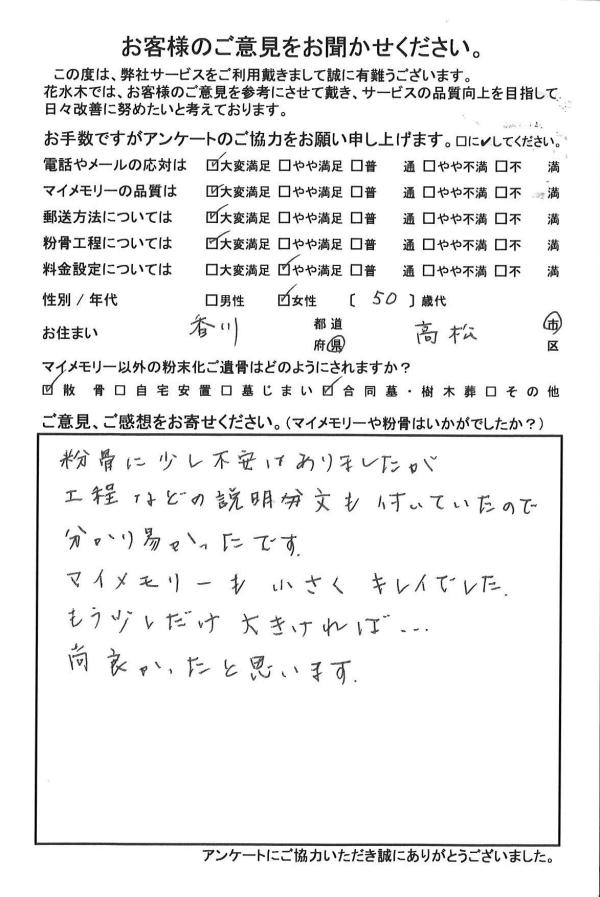 お客様のご意見をお聞かせください。
この度は、弊社サービスをご利用戴きまして誠に有難うございます。
花水木では、お客様のご意見を参考にさせて戴き、サービスの品質向上を目指して
日々改善に努めたいと考えております。
お手数ですがアンケートのご協力をお願い申し上げます。□に✔してください。
電話やメールの応対は ☑大変満足 □やや満足 □普 通 □やや不満 □不 満
マイメモリーの品質は ☑大変満足 □やや満足 □普 通 □やや不満 □不 満
郵送方法については ☑大変満足 □やや満足 □普 通 □やや不満 □不 満
粉骨工程については ☑大変満足 □やや満足 □普 通 □やや不満 □不 満
料金設定については □大変満足 ☑やや満足 □普 通 □やや不満 □不 満
性別 / 年代 □男性 ☑女性 〔 50 〕歳代
お住まい 香川 都道府県 高松 市区
マイメモリー以外の粉末化ご遺骨はどのようにされますか？
☑散 骨 □自宅安置 □墓じまい ☑合同墓・樹木葬 □その他
ご意見、ご感想をお寄せください。(マイメモリーや粉骨はいかがでしたか？)
粉骨に少し不安はありましたが
工程などの説明分文も付いていたので
分かり易かったです。
マイメモリーも小さくキレイでした。
もう少しだけ大きければ…
尚良かったと思います。
アンケートにご協力いただき誠にありがとうございました。